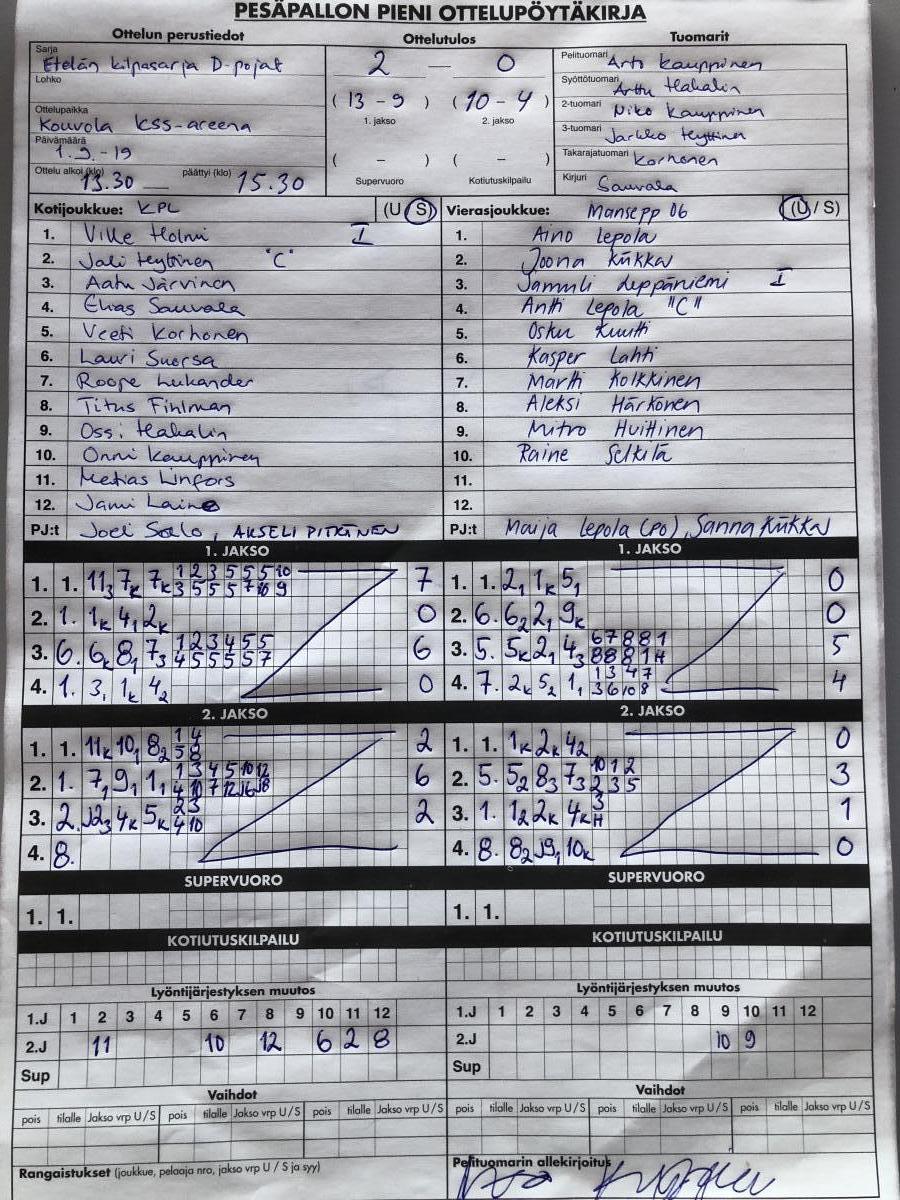 PESÄPALLON PIENI OTTELUPÖYTÄKIRJA
Ottelun perustiedot
Sarja
Etelän kilpasarja D-pojat
Lohko
Ottelupaikka
Kouvola KSS-areena
Päivämäärä
1.9.-19
Ottelu alkoi (klo) 13.30 päättyi (klo) 15.30
Ottelutulos
2 — 0
( 13 – 9 ) ( 10 – 4 )
1. jakso 2. jakso
( – ) ( – )
Supervuoro Kotiutuskilpailu
Tuomarit
Pelituomari Arto Kauppinen
Syöttötuomari Arttu Hakalin
2-tuomari Niko Kauppinen
3-tuomari Jarkko Hyttinen
Takarajatuomari Korhonen
Kirjuri Sauvala
Kotijoukkue: KPL (U / S)
1. Ville Holmi I
2. Jali Hyttinen "C"
3. Aatu Järvinen
4. Elias Sauvala
5. Veeti Korhonen
6. Lauri Suorsa
7. Roope Lukander
8. Titus Fihlman
9. Ossi Hakalin
10. Onni Kauppinen
11. Matias Linfors
12. Jami Laine
PJ:t Joel Salo, AKSELI PITKÄNEN
Vierasjoukkue: Mansepp 06 (U / S)
1. Aino Lepola
2. Joona Kukka
3. Leppäniemi I
4. Antti Lepola "C"
5. Osku Kuutti
6. Kasper Lahti
7. Martti Kolkkinen
8. Aleksi Härkönen
9. Mitro Huittinen
10. Raine Selkilä
11.
12.
PJ:t Maija Lepola (PO), Sanna Kukka
1. JAKSO
1. 1. 7
2. 1. 1k 4, 2k 0
3. 6. 6
4. 1. 3, 1k 42 0
1. JAKSO
1. 1. 2, 1k 5, 0
2. 6. 62 2, 9k 0
3. 5. 5k 2, 43 5
4. 7. 2k 52 1, 4
2. JAKSO
1. 1. 11k 10, 82 2
2. 1. 7, 9, 1, 6
3. 2. 4k 5k 2
4. 8.
2. JAKSO
1. 1. 1k 2k 42 0
2. 5. 52 83 73 3
3. 1. 12 2k 4k 1
4. 8. 82 J9, 10k 0
SUPERVUORO
1. 1.
SUPERVUORO
1. 1.
KOTIUTUSKILPAILU
KOTIUTUSKILPAILU
Lyöntijärjestyksen muutos
1.J 1 2 3 4 5 6 7 8 9 10 11 12
2.J 11 10 12 6 2 8
Sup
Lyöntijärjestyksen muutos
1.J 1 2 3 4 5 6 7 8 9 10 11 12
2.J 10 9
Sup
Vaihdot
pois tilalle Jakso vrp U/S pois tilalle Jakso vrp U/S pois tilalle Jakso vrp U/S
Vaihdot
pois tilalle Jakso vrp U/S pois tilalle Jakso vrp U/S pois tilalle Jakso vrp U/S
Rangaistukset (joukkue, pelaaja nro, jakso vrp U / S ja syy)
Pelituomarin allekirjoitus